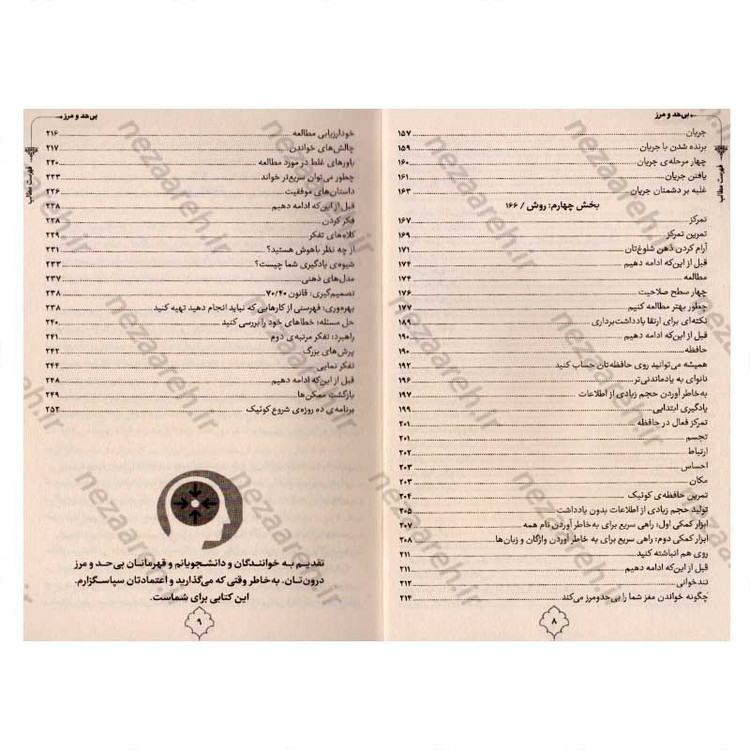 بی‌حد و مرز
فهرست مطالب
جریان ۱۵۷
برنده شدن با جریان ۱۵۹
چهار مرحله‌ی جریان ۱۶۰
یافتن جریان ۱۶۱
غلبه بر دشمنان جریان ۱۶۳
بخش چهارم: روش / ۱۶۶
تمرکز ۱۶۷
تمرین تمرکز ۱۶۹
آرام کردن ذهن شلوغ‌تان ۱۷۱
قبل از این‌که ادامه دهیم ۱۷۴
مطالعه ۱۷۴
چهار سطح صلاحیت ۱۷۶
چطور بهتر مطالعه کنیم ۱۷۷
نکته‌ای برای ارتقا یادداشت‌برداری ۱۸۹
قبل از این‌که ادامه دهیم ۱۹۰
حافظه ۱۹۰
همیشه می‌توانید روی حافظه‌تان حساب کنید ۱۹۲
نانوای به یادماندنی‌تر ۱۹۶
به‌خاطر آوردن حجم زیادی از اطلاعات ۱۹۷
یادگیری ابتدایی ۱۹۹
تمرکز فعال در حافظه ۲۰۱
تجسم ۲۰۱
ارتباط ۲۰۲
احساس ۲۰۳
مکان ۲۰۳
تمرین حافظه‌ی کوئیک ۲۰۴
تولید حجم زیادی از اطلاعات بدون یادداشت ۲۰۵
ابزار کمکی اول: راهی سریع برای به‌خاطر آوردن نام همه ۲۰۷
ابزار کمکی دوم: راهی سریع برای به‌خاطر آوردن واژگان و زبان‌ها ۲۰۸
روی هم انباشته کنید ۲۱۱
قبل از این‌که ادامه دهیم ۲۱۱
تندخوانی ۲۱۲
چگونه خواندن مغز شما را بی‌حدومرز می‌کند ۲۱۴
۸
بی‌حد و مرز
فهرست مطالب
خودارزیابی مطالعه ۲۱۶
چالش‌های خواندن ۲۱۷
باورهای غلط در مورد مطالعه ۲۲۰
چطور می‌توان سریع‌تر خواند ۲۲۳
داستان‌های موفقیت ۲۲۶
قبل از این‌که ادامه دهیم ۲۲۸
فکر کردن ۲۲۸
کلاه‌های تفکر ۲۲۹
از چه نظر باهوش هستید؟ ۲۳۱
شیوه‌ی یادگیری شما چیست؟ ۲۳۳
مدل‌های ذهنی ۲۳۷
تصمیم‌گیری: قانون ۷۰/۴۰ ۲۳۸
بهره‌وری: فهرستی از کارهایی که نباید انجام دهید تهیه کنید ۲۳۸
حل مسئله: خطاهای خود را بررسی کنید ۲۴۰
راهبرد: تفکر مرتبه‌ی دوم ۲۴۱
پرش‌های بزرگ ۲۴۲
تفکر نمایی ۲۴۴
قبل از این‌که ادامه دهیم ۲۴۸
بازگشت ممکن‌ها ۲۴۹
برنامه‌ی ده روزه‌ی شروع کوئیک ۲۵۲
تقدیم به خوانندگان و دانشجویانم و قهرمانان بی‌حد و مرز
درون‌تان. به‌خاطر وقتی که می‌گذارید و اعتمادتان سپاسگزارم.
این کتابی برای شماست.
۹
nezaareh.ir